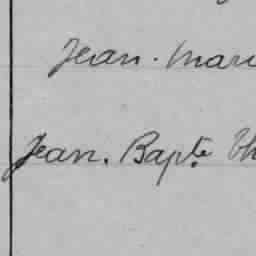 Jean. Mari
Jean. Bapte Th